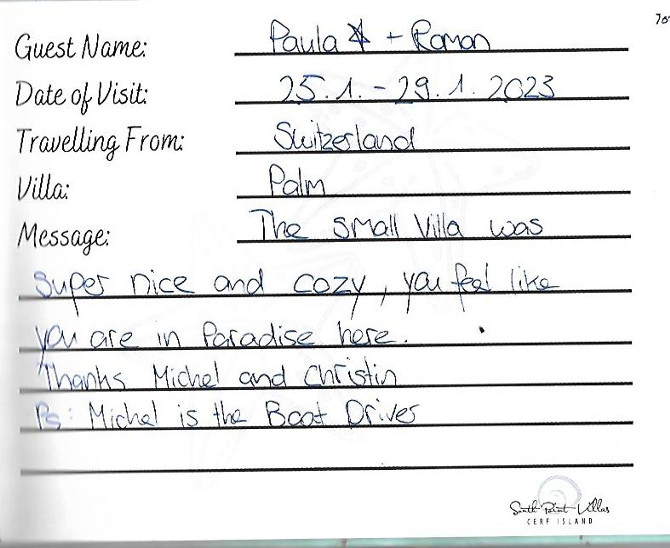 Guest Name: Paula + Ramon
Date of Visit: 25.1. - 29.1. 2023
Travelling From: Switzerland
Villa: Palm
Message: The small Villa was
super nice and cozy, you feel like
you are in Paradise here.
Thanks Michel and Christin
Ps: Michel is the Boat Driver
South Point Villas
CERF ISLAND